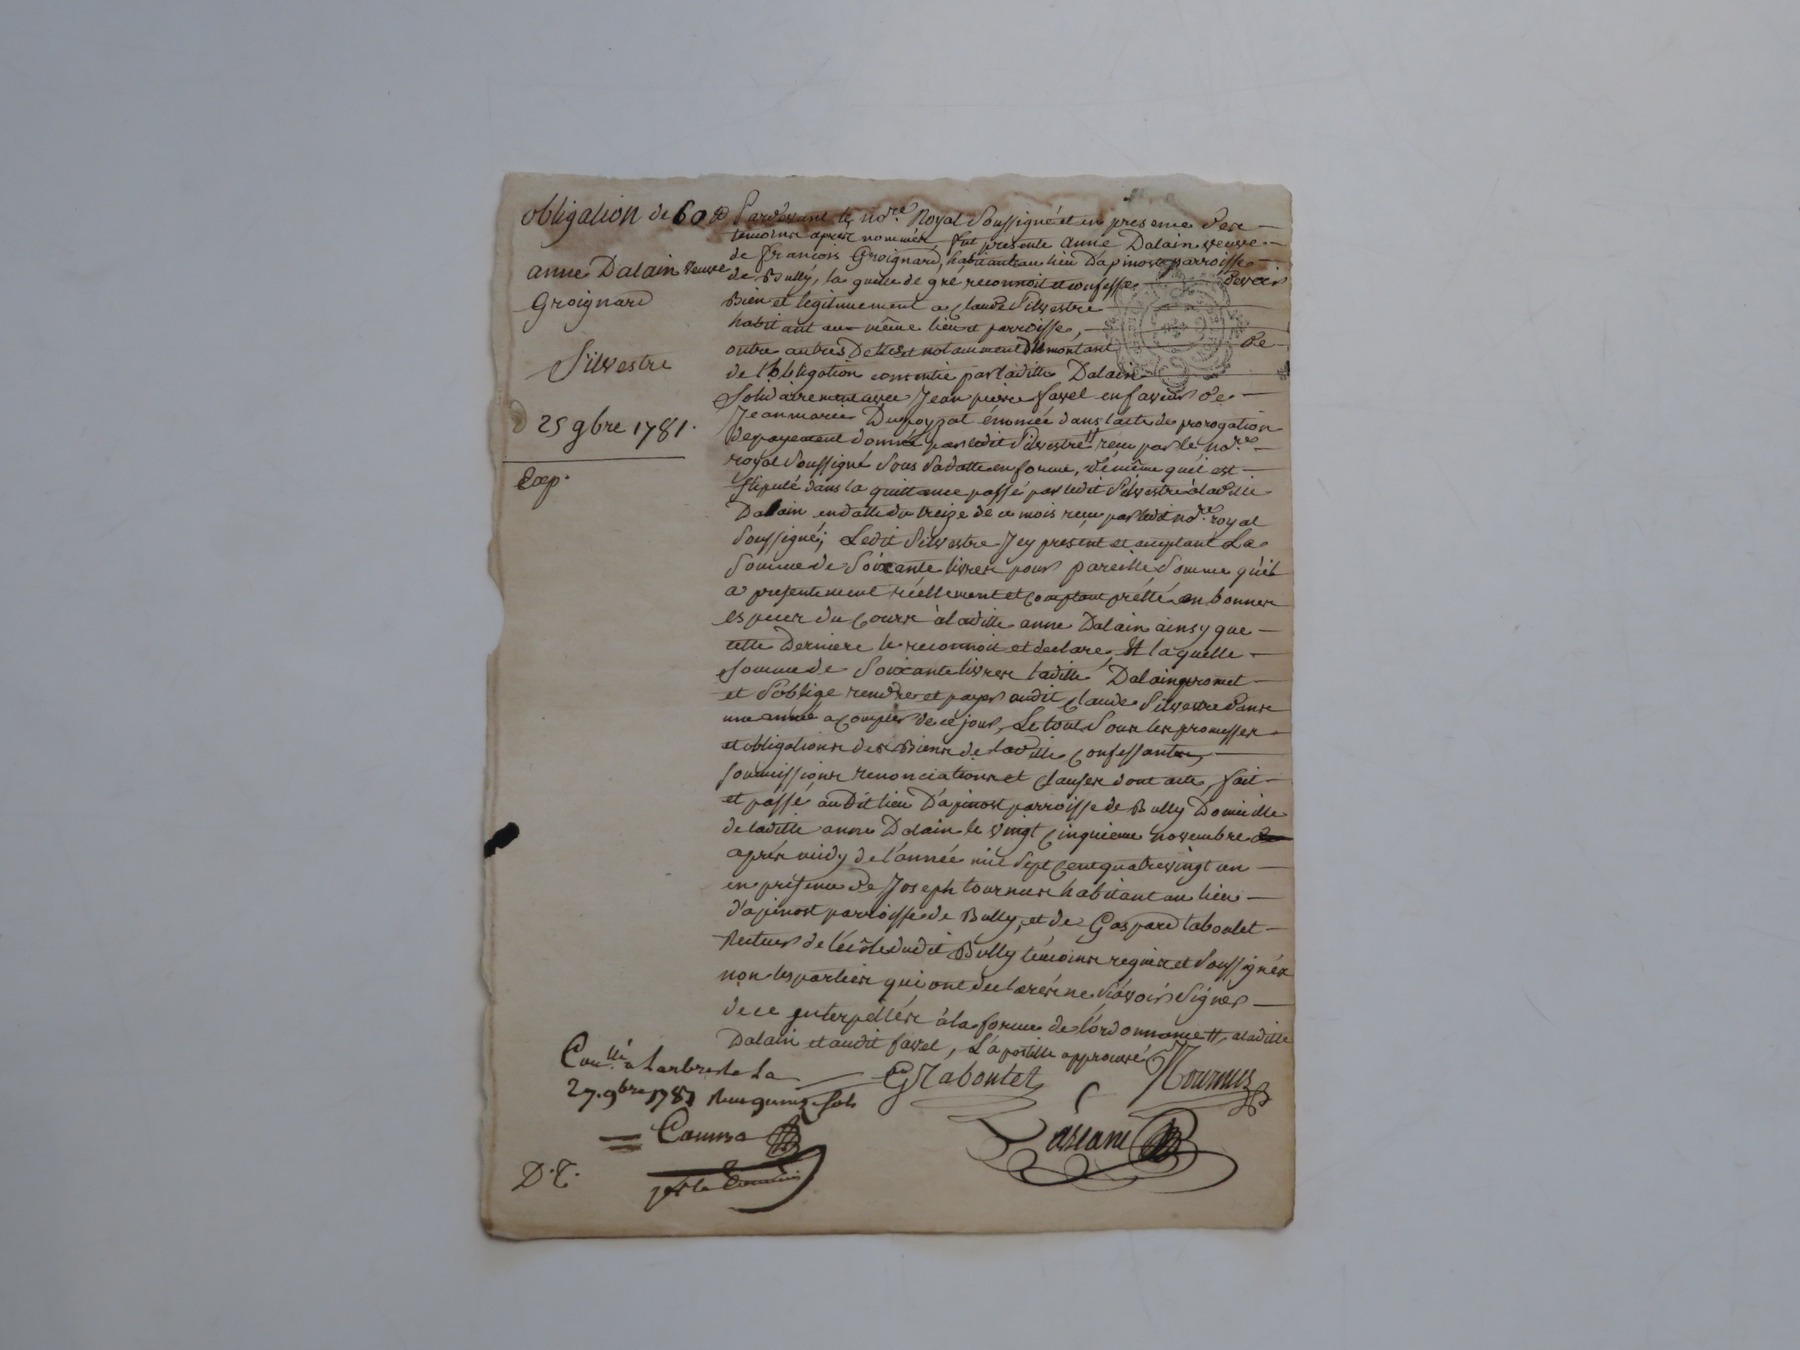 obligation de 60 ₶
anne Dalain veuve
Groignard
Silvestre
25 9bre 1781.
Exp.
Pardevant le no.re Royal Soussigné et en presence des
temoins après nommés fut presente anne Dalain veuve
de françois Groignard, habitante au lieu D'apinost parroisse
de Bully, la quelle de gré reconnoit et confesse devoir
Bien et legitimement a Claude Silvestre
habitant au même lieu et parroisse,
outre autres Dettes et notamment du montant de
de l'obligation consentie par laditte Dalain
Solidairement avec Jean pierre favel en faveur de
Jean marie Dupoyzat énoncée dans l'acte de prorogation
de payement donné par ledit Silvestre # reçu par le no.re
royal Soussigné Sous Sa datte en forme, de même qu'il est
Stipulé dans la quittance passé par ledit Silvestre a laditte
Dalain en datte du treize de ce mois reçu par ledit no.re royal
Soussigné; Ledit Silvestre Icy present et acceptant La
Somme de Soixante livres pour pareille Somme qu'il
a presentement réellement et comptant prêtté en bonnes
especes du Cours a laditte anne Dalain ainsy que
cette Derniere le reconnoit et declare, Et la quelle
Somme de Soixante livres laditte Dalain promet
et S'oblige rendre et payer audit Claude Silvestre Dans
une année a compter de ce jour, Le tout Sous les promesses
et obligations des Biens de laditte Confessante,
Soumissions renonciations et Clauses dont acte, fait
et passé au Dit lieu D'apinost parroisse de Bully Domicille
de laditte anne Dalain le vingt Cinquieme novembre
après midy de l'année mil Sept Cent quatre vingt un
en presence de Joseph tournus habitant au lieu
d'apinost parroisse de Bully, et de Gaspard taboulet
Recteur de l'école dudit Bully témoins requis et Soussignés
non les parties qui ont declarés ne Sçavoir Signer
de ce Interpellés a la forme de l'ordonnance # a laditte
Dalain et audit favel, L'apostille approuvé
G Taboulet
Tournus
Conllé a Larbresle La
27. 9bre 1781 Reçu quinze Sols
D.T.